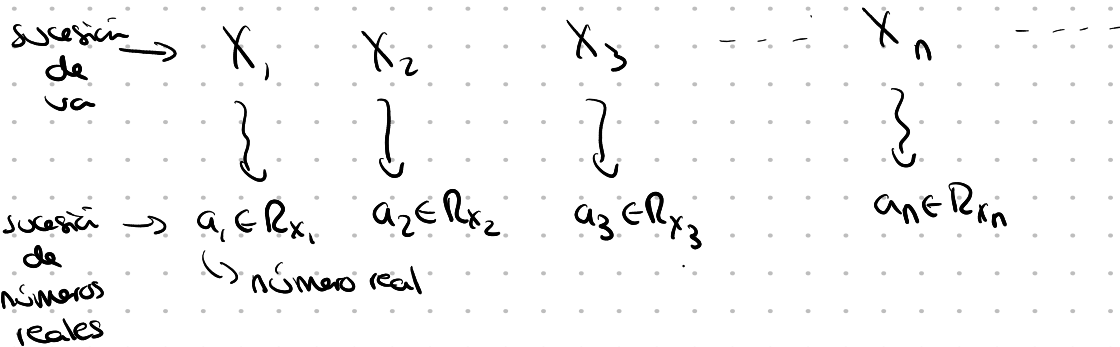 sucesión
de
va
→ X₁ X₂ X₃ - - - Xₙ - - - -
sucesión
de
números
reales
→ a₁ ∈ R_{X₁} a₂ ∈ R_{X₂} a₃ ∈ R_{X₃} aₙ ∈ R_{Xₙ}
↳ número real